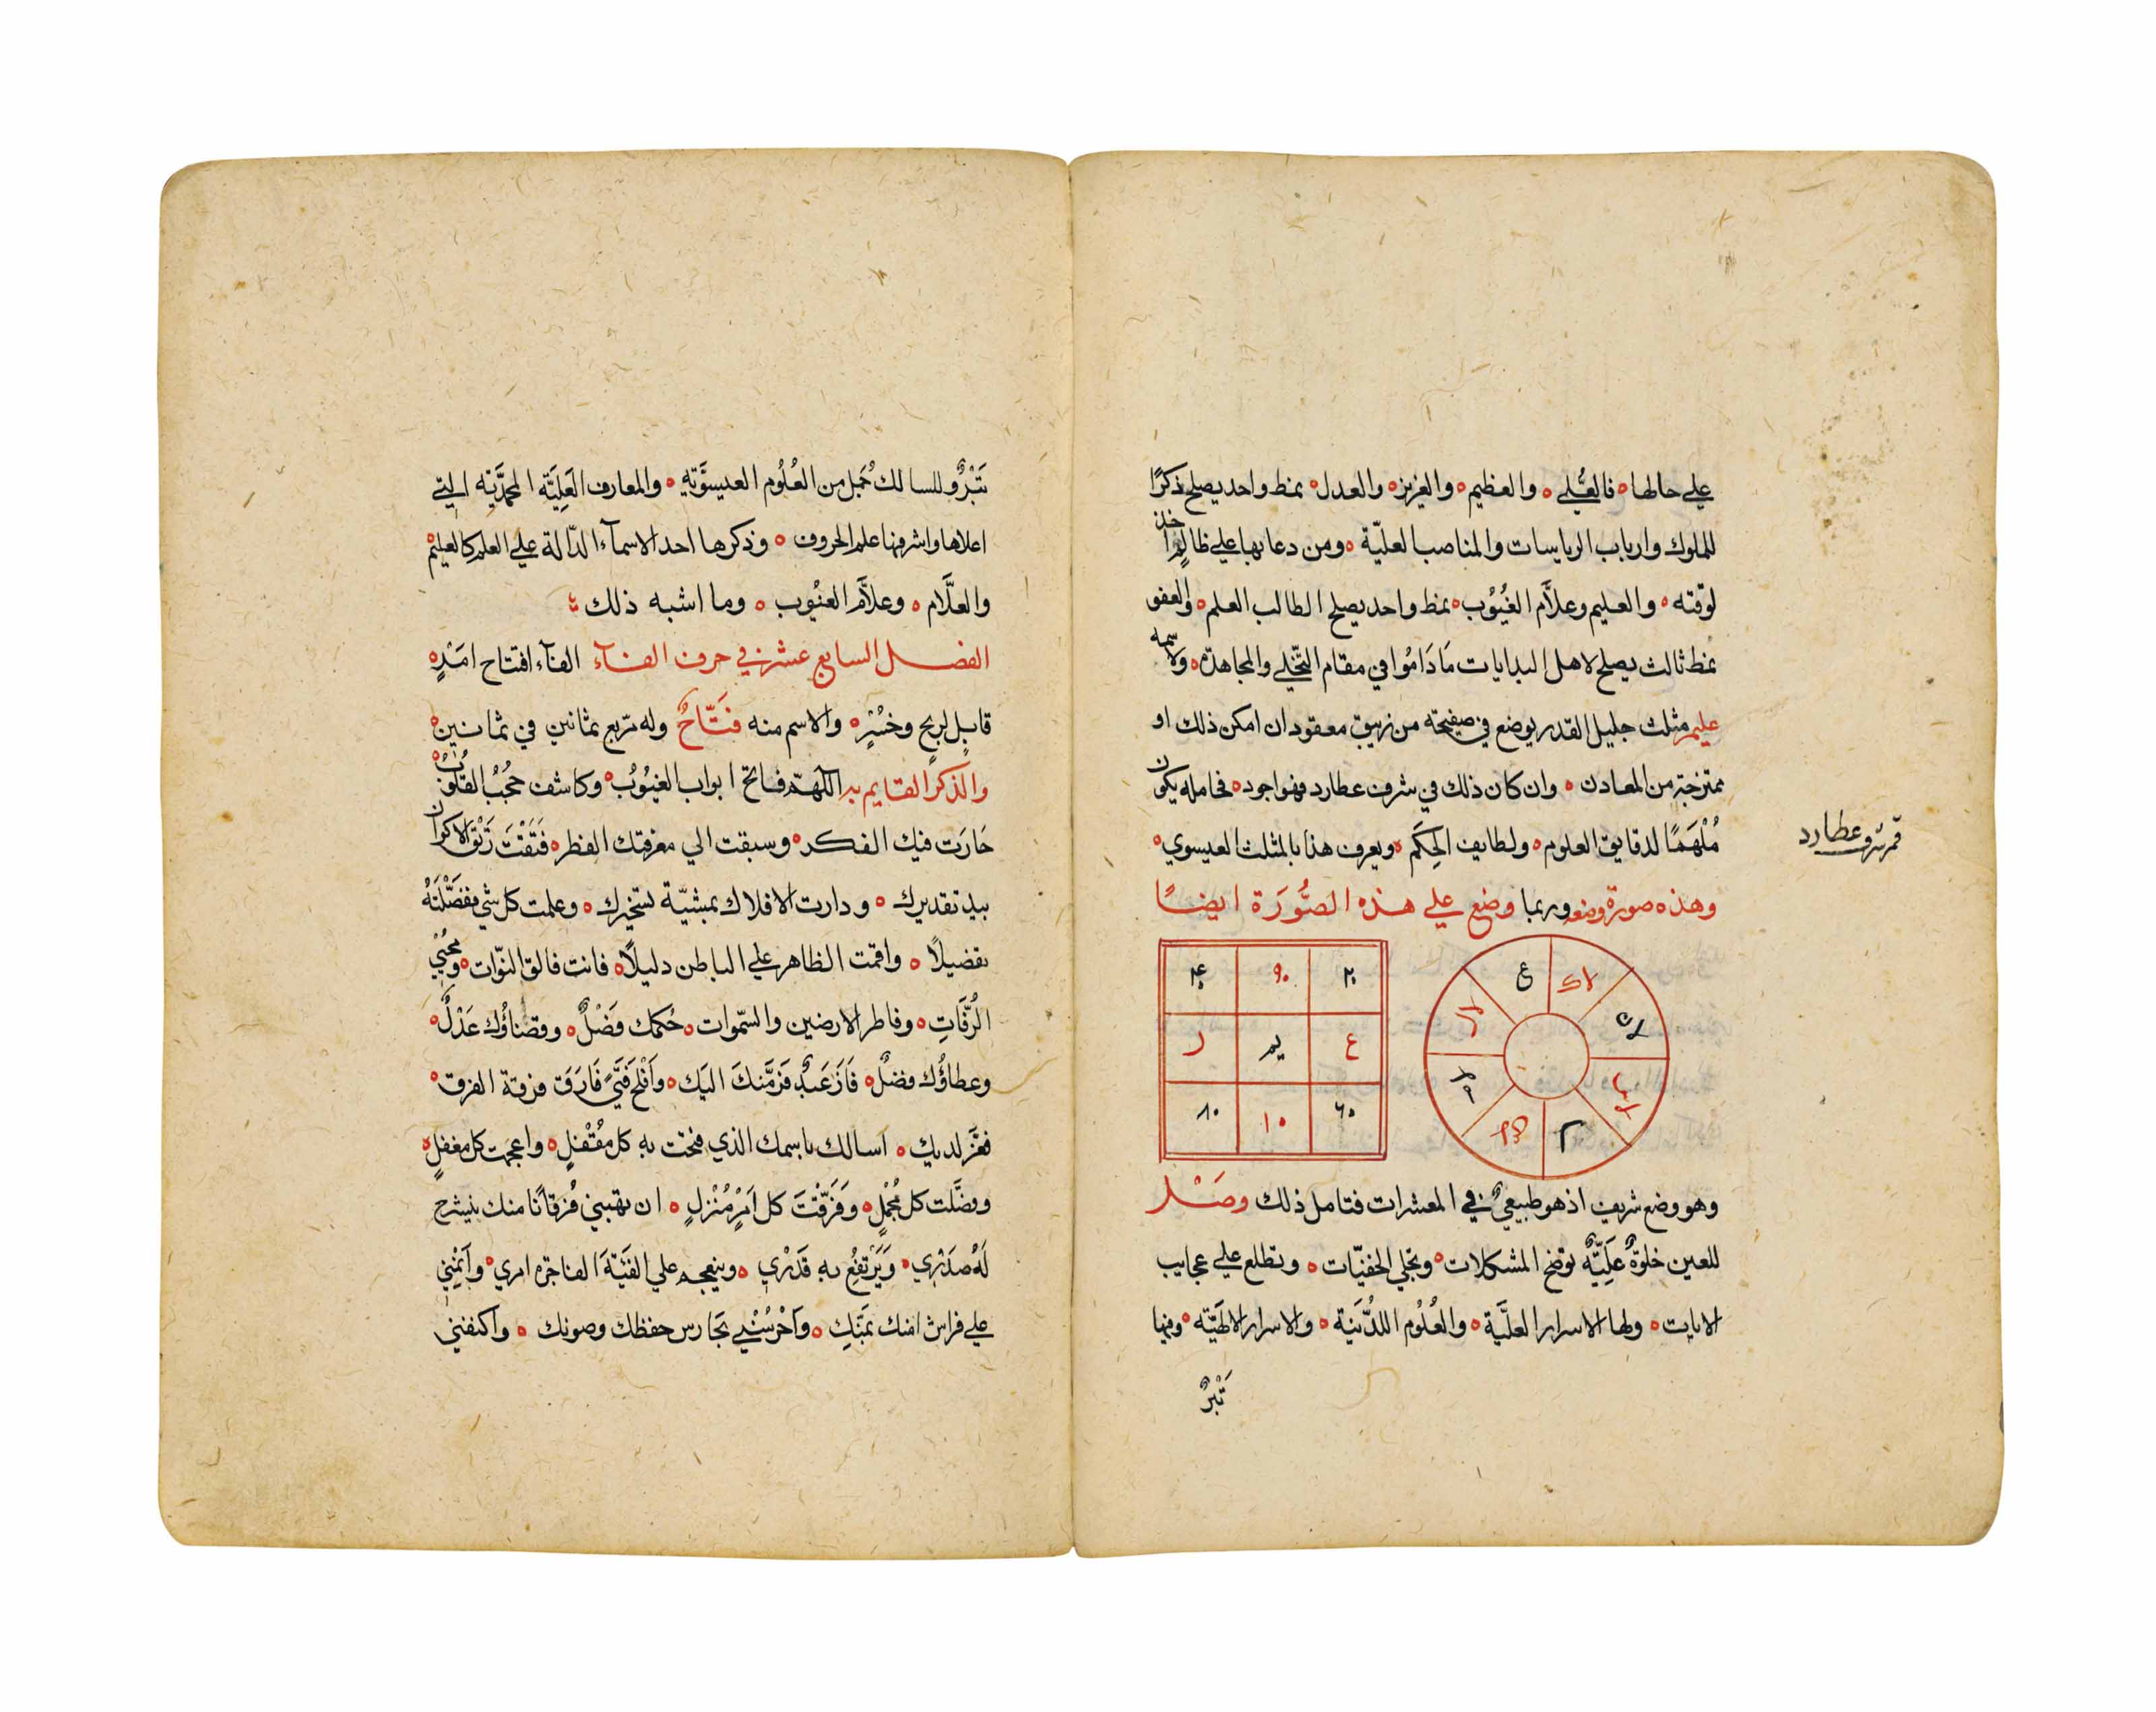 علي حالها ه فالعلي ه والعظيم ه والعزيز ه والعدل ه نمط واحد يصلح ذكرًا
للملوك وارباب الرياسات والمناصب العليّة ه ومن دعا بها علي ظالمٍ اخذ
لوقته ه والعليم وعلاَّم الغُيُوب ه نمط واحد يصلح لطالب العلم ه والعفو
نمط ثالث يصلح لاهل البدايات مَا دَامُوا في مقام التخّلي والمجاهدة ه ولاسمه
عليم مثلث جليل القدر يوضع في صفيحة من زيبق معقود ان امكن ذلك او
ممتزجة من المعادن ه وان كان ذلك في شرف عطارد فهو اجود ه فحامله يكون
مُلْهَمًا لدقايق العلوم ه ولطايف الحِكَم ه ويعرف هذا بالمثلث العيسوي ه
شرف عطارد
وهذه صورة وضعه وربما وضع علي هذه الصُّورَة ايضًا
٢٠ ٩٠ ٤٠
ع يم ر
٦٠ ١٠ ٨٠
وهو وضع شريف اذ هو طبيعيٌ في المعشرات فتامل ذلك وصَــْل
للعين خلوَةٌ عَلِيَّةٌ توضح المشكلات ه وتجلي الخفيّات ه وتطلع علي عجايب
الايات ه ولها الاسرار العليَّة ه والعُلُوم اللدُّنيَة ه والاسرار الالهيَّة ه وفيها
تَبْرُ
تَبْرُو للسالك جُمَل من العُلُوم العيسوَّيةِ ه والمعارف العَلِيَّة المحمدَّية التي
اعلاها واشرفها علم الحروف ه وذكرها احد الاسمآء الدّالة علي العلم كالعليم ه
والعلَّام ه وعلاَّم الغيُوب ه وما اشبه ذلك
الفصــل السابع عشر في حرف الفــآء الفآء افتتاح امَدٍ ه
قابلٍ لربح وخسُرٍ ه والاسم منه فتَّاحٌ وله مربع ثمانين في ثمانين ه
والذكر القايم به اللّهمّ فاتح ابواب الغيُوُب ه وكاشف حجُبُ القلُوُب ه
حَارَت فيك الفكر ه وسبقت الي معرفتك الفطر ه فَتَقْتَ رَتْقَ الاكوان
بيد تقديرك ه ودارت الافلاك بمشيّة تسخيرك ه وعلمت كل شي ففصَّلْتَهُ
تفضيلاً ه واقمت الظاهر علي الباطن دليلاً ه فانت فالق النوّات ه ومحُيْي
الرُّفَاتِ ه وفاطر الارضين والسّموات ه حُكمك فَصْلٌ ه وقضاؤُك عَدْلٌ ه
وعطاؤُك فضلٌ ه فَازَ عَبدٌ فَرَّ منكَ اليَك ه وَاَفْلَحَ فَتًي فَارَقَ فرقة الفرق ه
فعَّز لديك ه اسالك باسمك الذي فتحت به كل مُقْفلٍ ه واعجمت كل مغفلٍ ه
وفصَّلت كل مُجْملٍ ه وَفَرَّقْتَ كل اَمَرٍ مُنْزلٍ ه ان تهبني فُرقاَنًا منك ينشرح
لَهُ صَدْرِي ه وَيَرْتفِعُ به قَدْرِي ه
علي فراش امنك ه وَاَحْرسُنْي بحَارس حفظك وصونك ه واكنفني